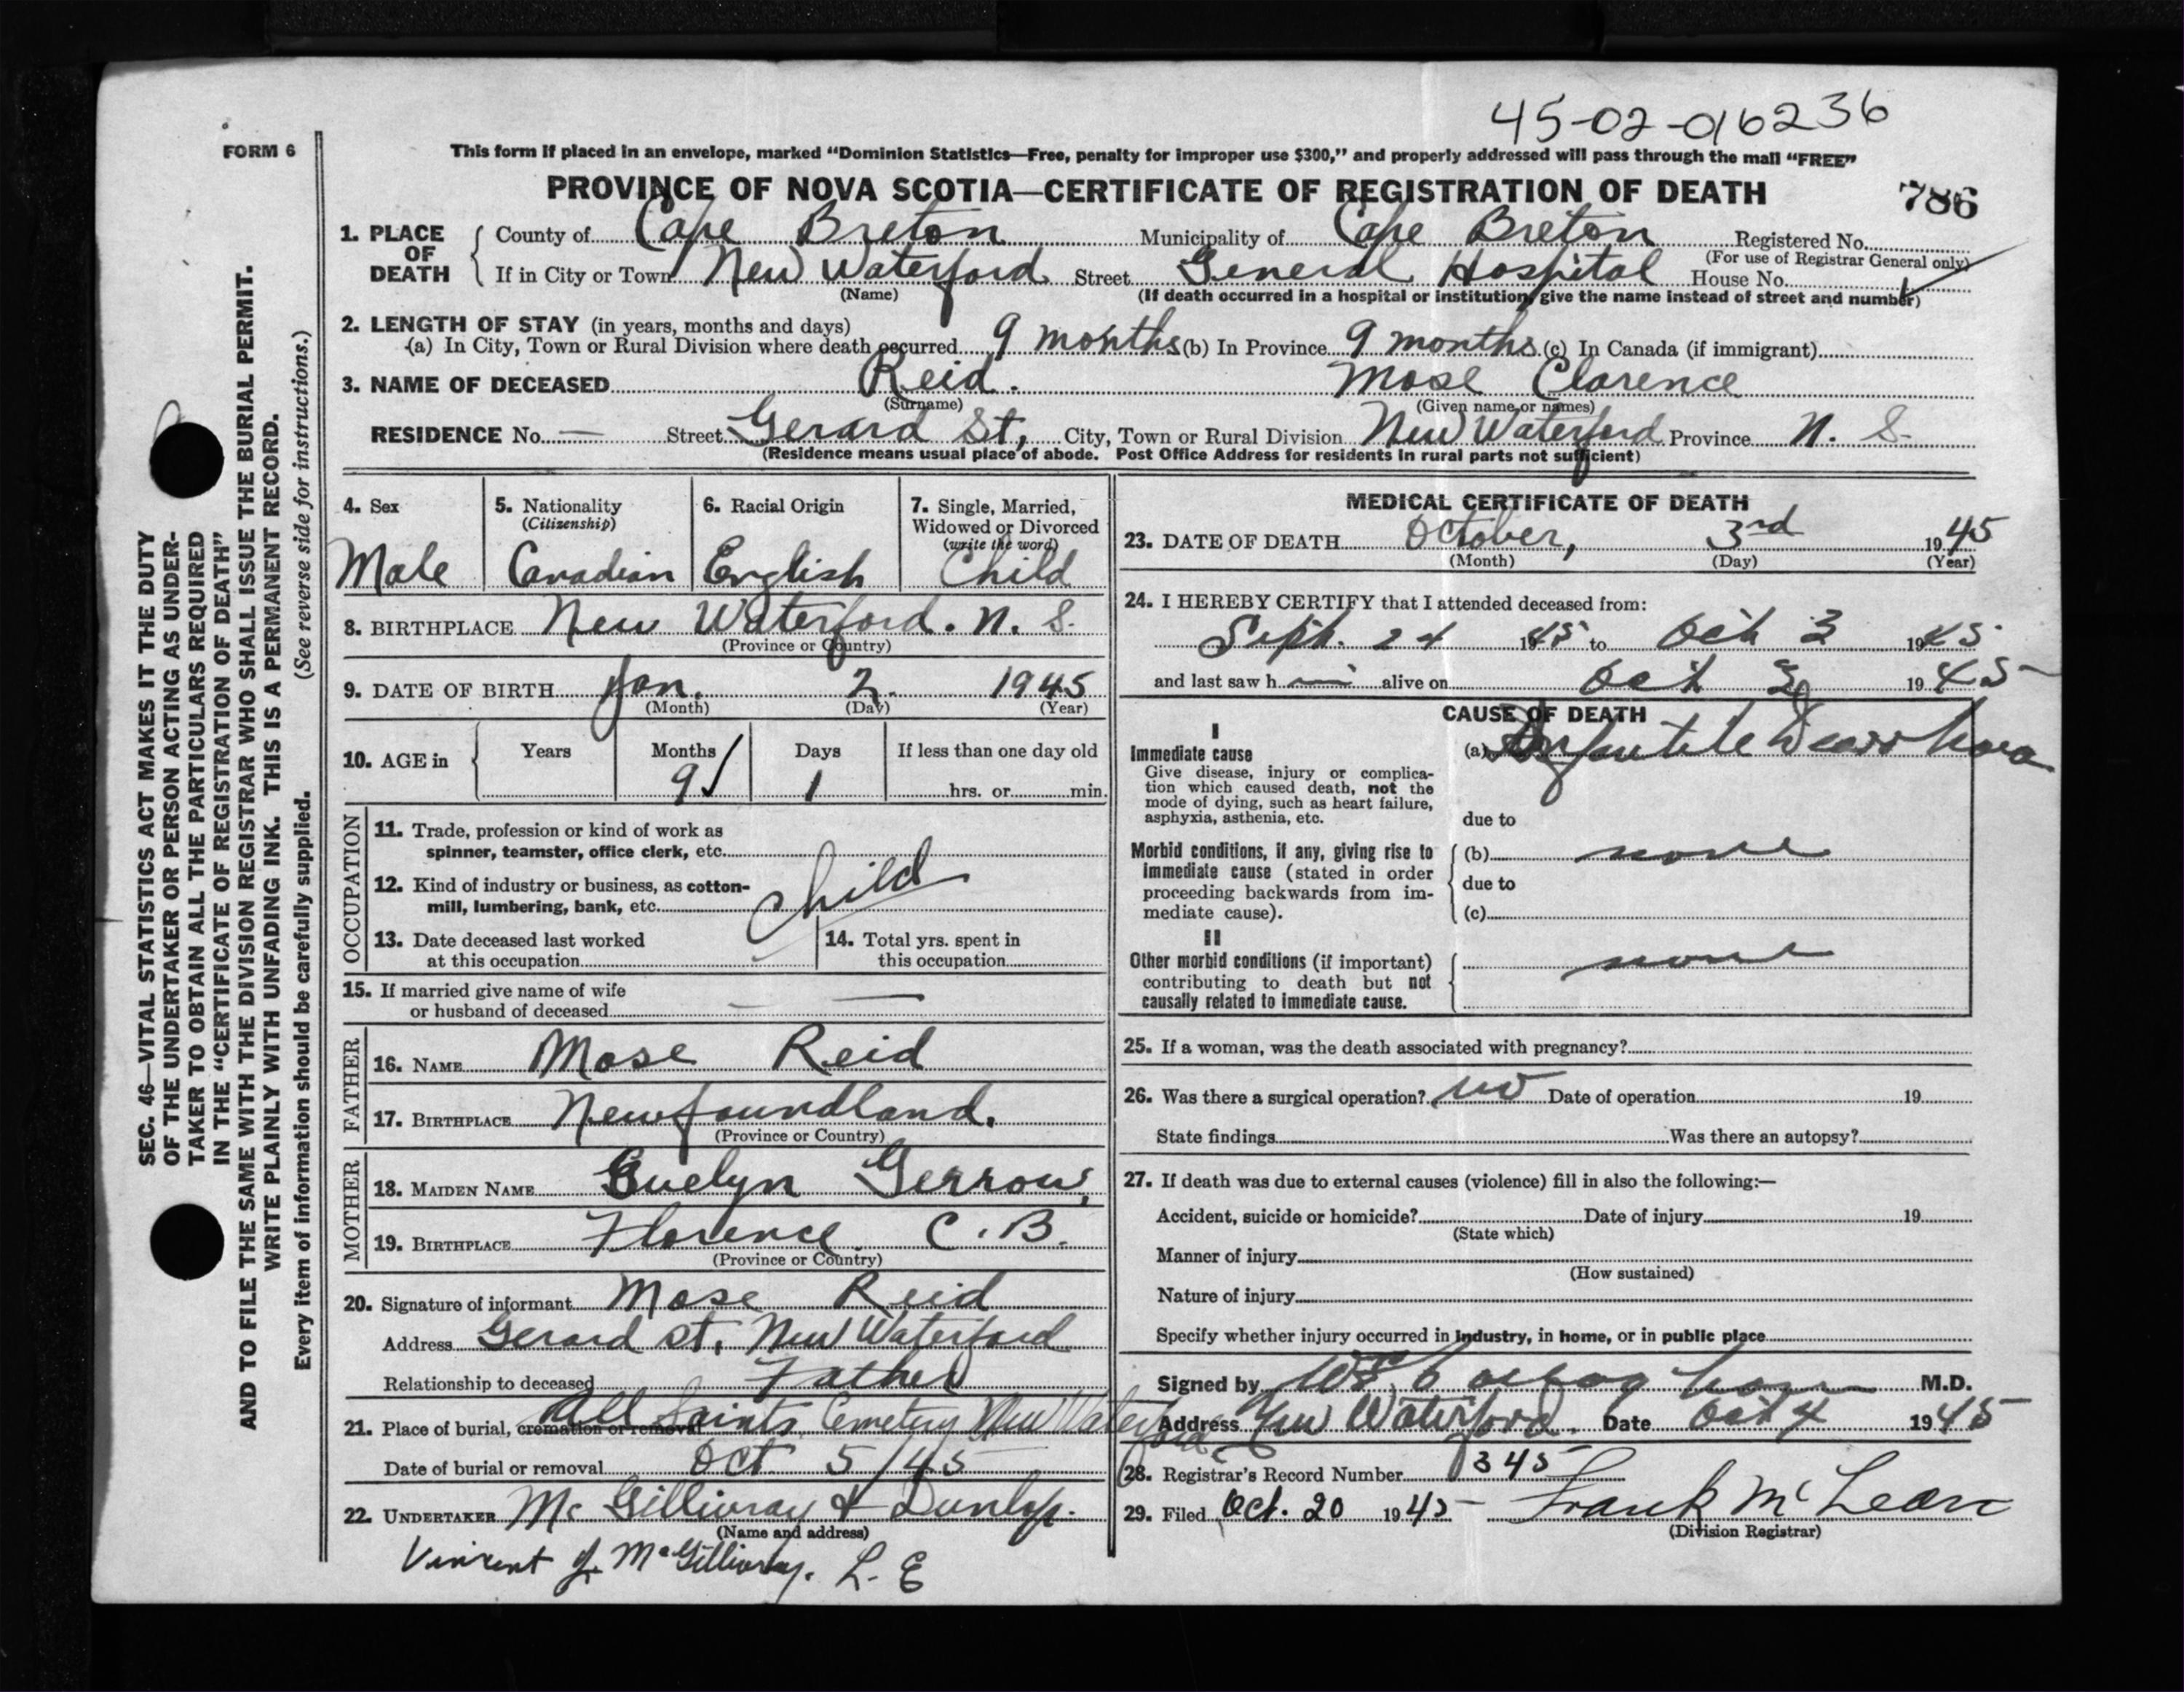 45-02-016236
FORM 6
This form if placed in an envelope, marked “Dominion Statistics—Free, penalty for improper use $300,” and properly addressed will pass through the mail “FREE”
PROVINCE OF NOVA SCOTIA—CERTIFICATE OF REGISTRATION OF DEATH 786
1. PLACE OF DEATH County of Cape Breton Municipality of Cape Breton Registered No.
(For use of Registrar General only)
If in City or Town New Waterford Street General Hospital House No.
(Name) (If death occurred in a hospital or institution, give the name instead of street and number)
2. LENGTH OF STAY (in years, months and days)
(a) In City, Town or Rural Division where death occurred 9 months (b) In Province 9 months (c) In Canada (if immigrant)
3. NAME OF DECEASED Reid. Mose Clarence
(Surname) (Given name or names)
RESIDENCE No. — Street Gerard St, City, Town or Rural Division New Waterford Province N. S.
(Residence means usual place of abode. Post Office Address for residents in rural parts not sufficient)
4. Sex Male
5. Nationality (Citizenship) Canadian
6. Racial Origin English
7. Single, Married, Widowed or Divorced (write the word) Child
8. BIRTHPLACE New Waterford. N. S.
(Province or Country)
9. DATE OF BIRTH Jan. 2. 1945
(Month) (Day) (Year)
10. AGE in Years Months Days If less than one day old
9 1 hrs. or min.
OCCUPATION
11. Trade, profession or kind of work as
spinner, teamster, office clerk, etc.
12. Kind of industry or business, as cotton-
mill, lumbering, bank, etc. Child
13. Date deceased last worked
at this occupation
14. Total yrs. spent in
this occupation
15. If married give name of wife
or husband of deceased — —
FATHER
16. NAME Mose Reid
17. BIRTHPLACE Newfoundland.
(Province or Country)
MOTHER
18. MAIDEN NAME Evelyn Gerrow,
19. BIRTHPLACE Florence C. B.
(Province or Country)
20. Signature of informant Mose Reid
Address Gerard St, New Waterford
Relationship to deceased Father
21. Place of burial, cremation or removal All Saints Cemetery New Waterford
Date of burial or removal Oct 5/45
22. UNDERTAKER McGillivray & Dunlop.
(Name and address)
Vincent J. McGillivray. L. E
MEDICAL CERTIFICATE OF DEATH
23. DATE OF DEATH October, 3rd 1945
(Month) (Day) (Year)
24. I HEREBY CERTIFY that I attended deceased from:
Sept. 24 1945 to Oct 3 1945
and last saw h im alive on Oct 3 1945
CAUSE OF DEATH
I
Immediate cause
Give disease, injury or complica-
tion which caused death, not the
mode of dying, such as heart failure,
asphyxia, asthenia, etc.
(a) Infantile Diarrhoea
due to
Morbid conditions, if any, giving rise to
immediate cause (stated in order
proceeding backwards from im-
mediate cause).
(b) none
due to
(c)
II
Other morbid conditions (if important)
contributing to death but not
causally related to immediate cause.
none
25. If a woman, was the death associated with pregnancy?
26. Was there a surgical operation? no Date of operation 19
State findings Was there an autopsy?
27. If death was due to external causes (violence) fill in also the following:—
Accident, suicide or homicide? Date of injury 19
(State which)
Manner of injury
(How sustained)
Nature of injury
Specify whether injury occurred in industry, in home, or in public place
Signed by M.D.
Address New Waterford. Date Oct 4 1945
28. Registrar's Record Number 345
29. Filed Oct. 20 1945 Frank McLean
(Division Registrar)
SEC. 46—VITAL STATISTICS ACT MAKES IT THE DUTY
OF THE UNDERTAKER OR PERSON ACTING AS UNDER-
TAKER TO OBTAIN ALL THE PARTICULARS REQUIRED
IN THE “CERTIFICATE OF REGISTRATION OF DEATH”
AND TO FILE THE SAME WITH THE DIVISION REGISTRAR WHO SHALL ISSUE THE BURIAL PERMIT.
WRITE PLAINLY WITH UNFADING INK. THIS IS A PERMANENT RECORD.
Every item of information should be carefully supplied. (See reverse side for instructions.)